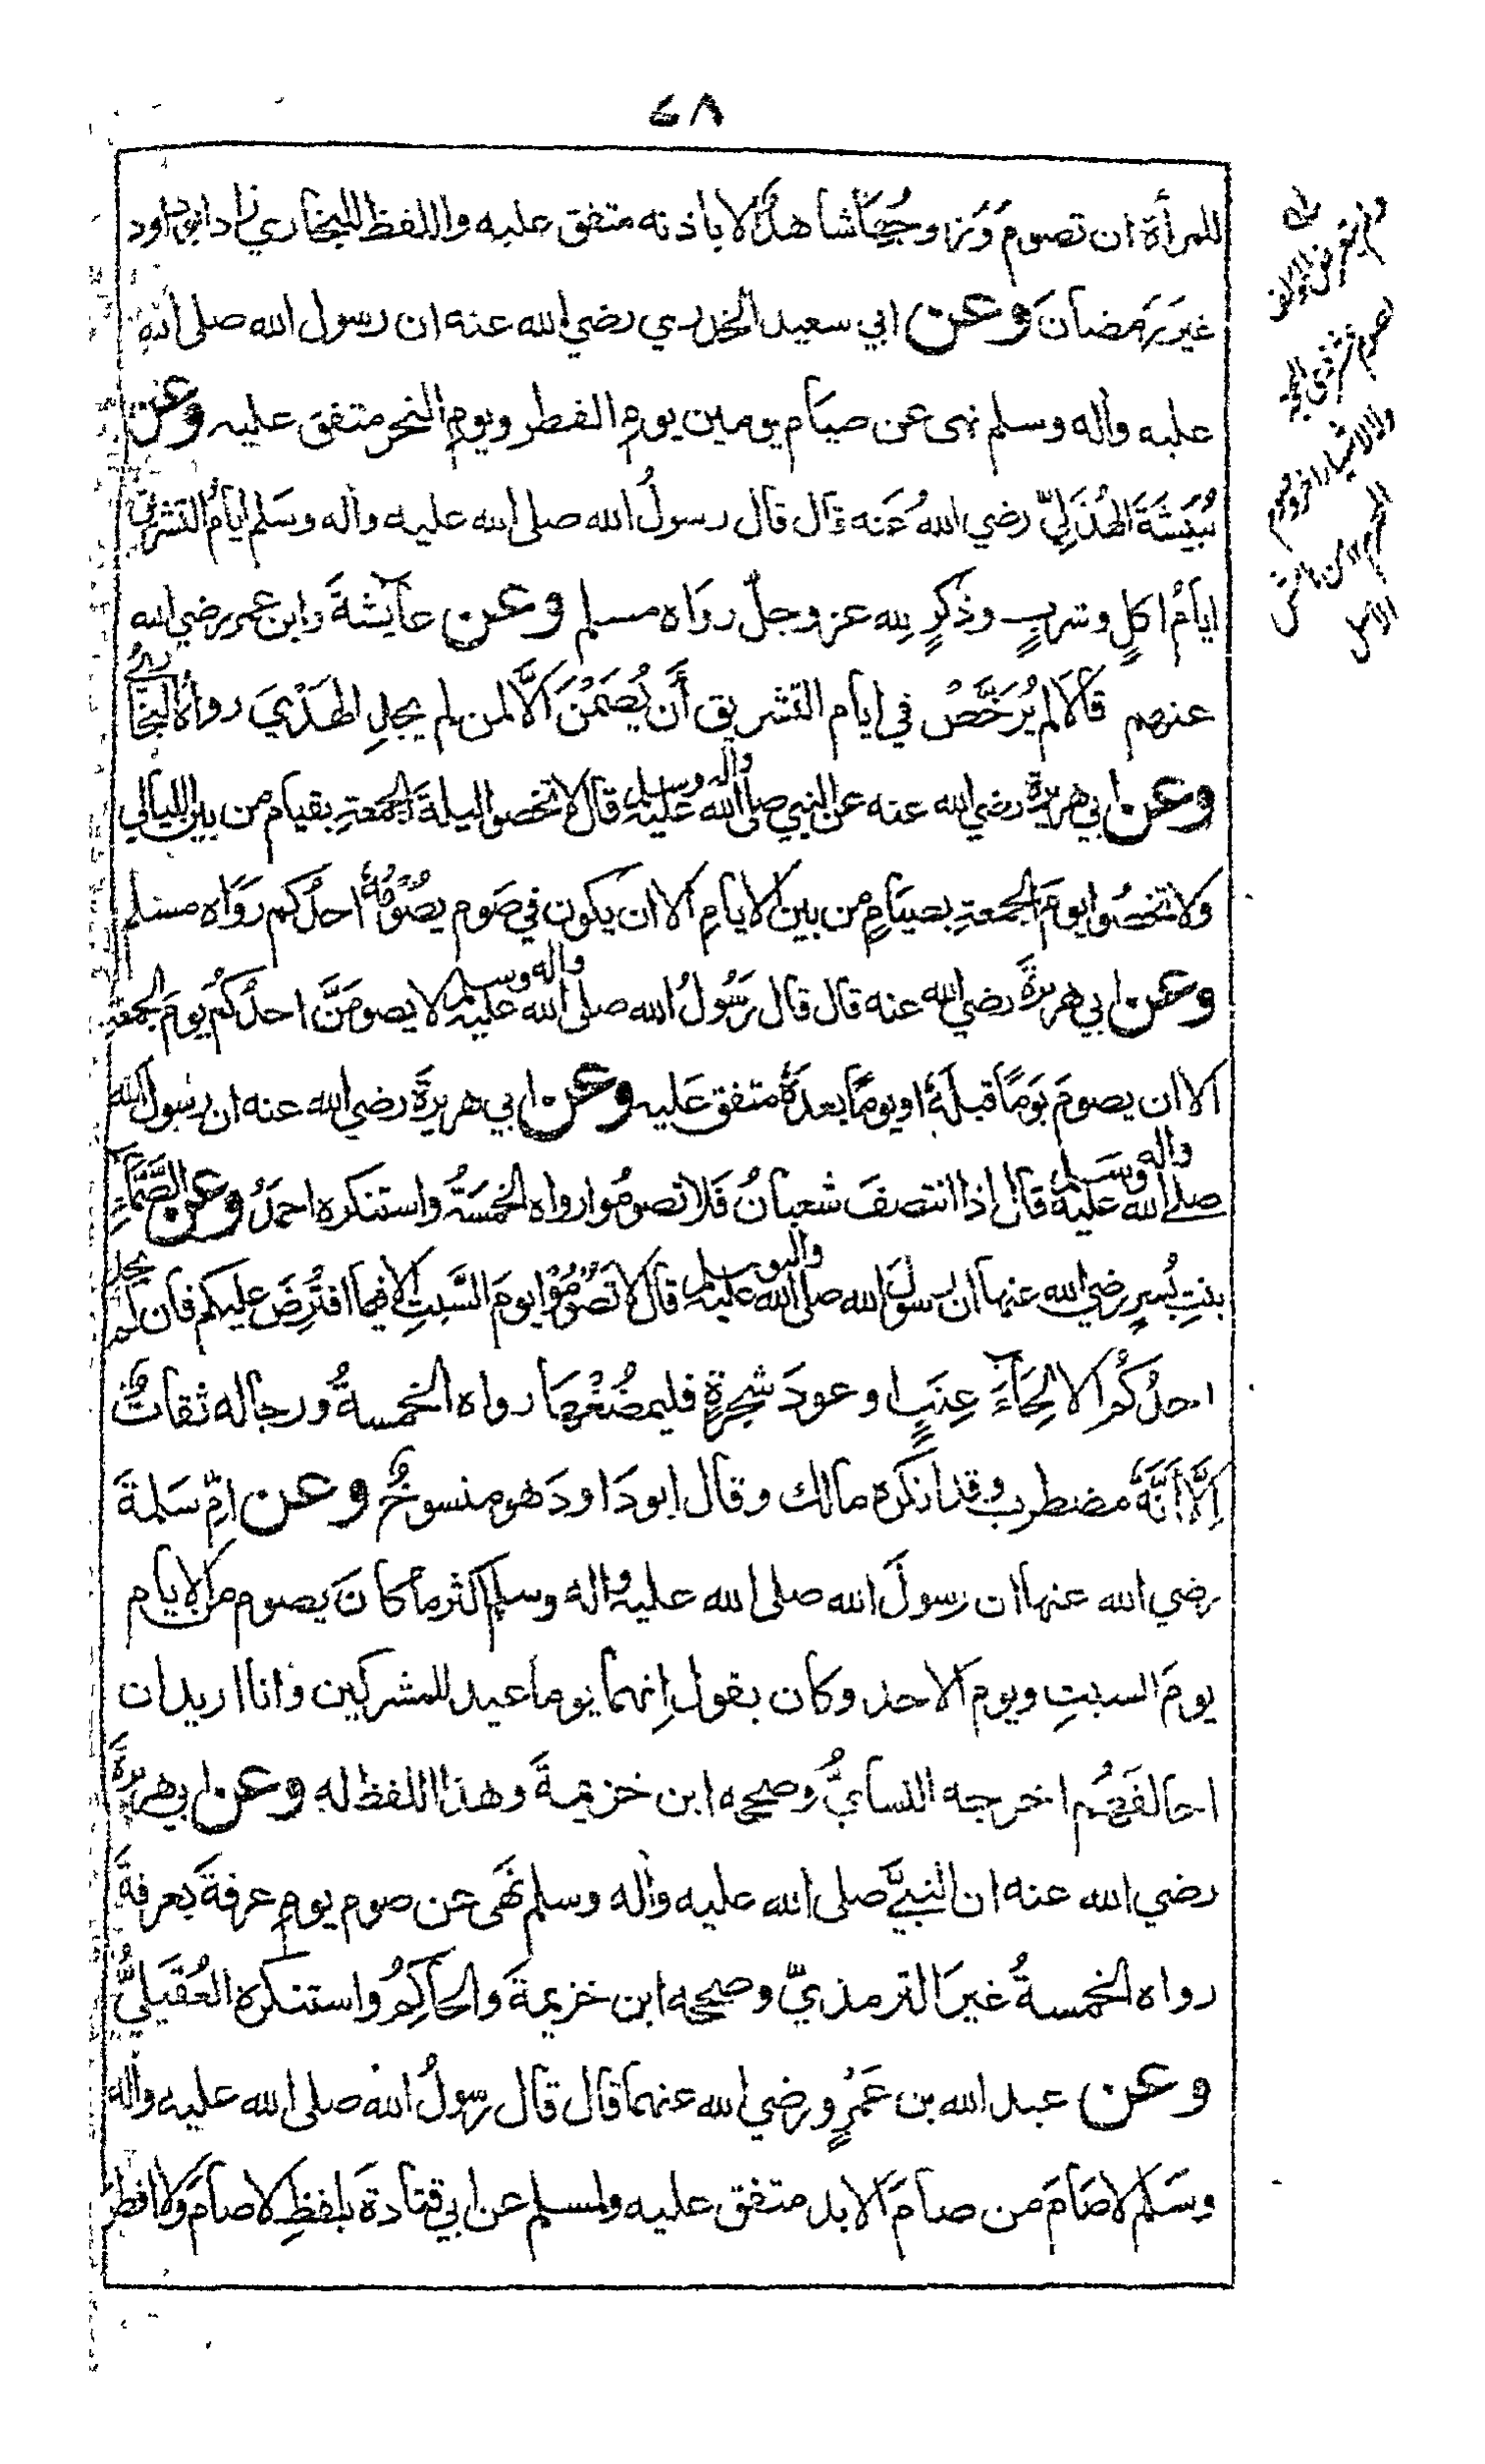 ٦٨
للمرأة ان تصوم وَزوجُهَا شاهدٌ الا باذنه متفق عليه واللفظ للبخاري زاد ابوداود
غيرَ رَمضانَ وعن ابي سعيد الخدري رضي الله عنه ان رسول الله صلى الله
عليه وأله وسلم نهى عن صيام يومين يومِ الفطر ويومِ النحر متفق عليه وعن
نُبَيشَةَ الهُذَلِيّ رضي اللهُ عَنه قال قال رسولُ الله صلى الله عليه وأله وسَلم ايامُ التشريق
ايامُ اكلٍ وشربٍ وذكرٍ لِله عز وجلّ رواه مسلم وعن عآيشةَ وابن عمر رضي الله
عنهم قَالَا لم يُرَخَّصْ في ايام التّشريق أَن يُصَمْنَ اَلّا لمن لم يجدِ الهَدْيَ رواهُ البخاريُّ
وعن ابي هريرةَ رضي الله عنه عن النبي صلى الله عليه وأله وسلم قال لا تخصوا ليلةَ الجمعةِ بقيام من بين الليالي
ولا تخصُوا يومَ الجمعةِ بصيامٍ من بين الايامِ الا ان يكون في صَوم يصُوْمُهُ احدُكم رَوَاه مسلم
وعن ابي هريرةَ رضي الله عنه قال قال رَسُولُ الله صلى الله عليه وأله وسلم لا يصومَنَّ احدُكُم يومَ الجمعةِ
الا ان يصومَ يَومًا قبلَهُ او يومًا بعدَهُ متفق عَليه وعن ابي هريرةَ رضي الله عنه ان رسول الله
صلى الله عليه وأله وسلم قال اذا انتصفَ شعبانُ فَلا تصومُوا رواه الخمسَةُ واستنكره احمدُ وعن الصَّمَّآءِ
بنتِ بُسرٍ رضي الله عنها ان رسولَ الله صلى الله عليه وأله وسلم قال لا تَصُوْمُوْا يومَ السَّبتِ الا فيما افتُرِضَ عليكم فان لم يجد
احدُكُم الا لِحَآءَ عِنَبٍ او عودَ شجرةٍ فليمضُغْهَا رواه الخمسةُ ورجاله ثقاتٌ
اِلَّا أَنَّهُ مضطرب وقد انكره مالك وقال ابو دَاودَ هو منسوخٌ وعن امِّ سَلمةَ
رضي الله عنها ان رسولَ الله صلى الله عليه وأله وسلم اكثر ما كانَ يصوم من الايام
يومَ السبتِ ويوم الاحد وكان يقول اِنهما يوما عيد للمشركين وانا اريد ان
اخالفَهُم اخرجه النسايُّ وصححه ابن خزيمةَ وهذا اللفظ له وعن ابي هريرةَ
رضي الله عنه ان النبيَّ صلى الله عليه وأله وسلم نهَى عن صوم يومِ عرفةَ بعرفةَ
رواه الخمسةُ غيرَ الترمذيّ وصححه ابن خزيمةَ والحاكِمُ واستنكره العُقَيليُّ
وعن عبد الله بن عَمْرٍو رضي الله عنهما قال قال رسولُ الله صلى الله عليه وأله
وسَلم لا صَامَ من صامَ الابد متفق عليه ولمسلم عن ابي قتادة بلفظِ لا صامَ ولا افطر